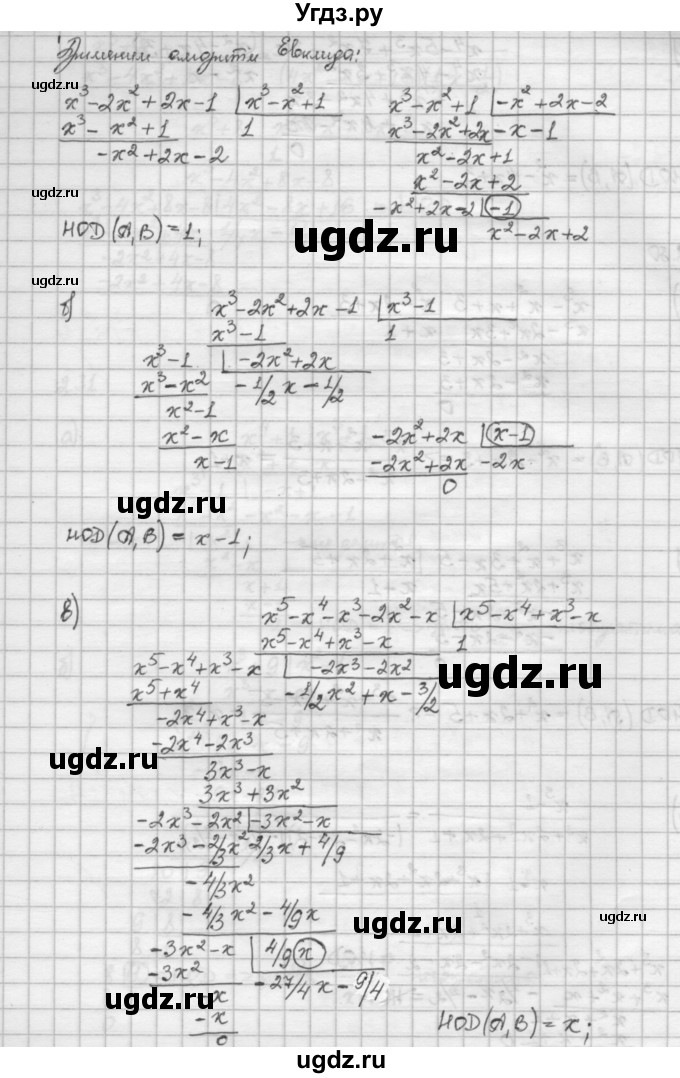 Угдз.ру
Применим алгоритм Евклида:
ugdz.ru
x³-2x²+2x-1 | x³-x²+1
x³-x²+1 1
-x²+2x-2
x³-x²+1 | -x²+2x-2
x³-2x²+2x -x-1
x²-2x+1
x²-2x+2
-x²+2x-2 | -1
x²-2x+2
ugdz.ru
НОД(A,B)=1;
ugdz.ru
б)
x³-2x²+2x-1 | x³-1
x³-1 1
x³-1 | -2x²+2x
x³-x² -1/2x-1/2
x²-1
x²-x
x-1
-2x²+2x | x-1
-2x²+2x -2x
0
ugdz.ru
ugdz.ru
НОД(A,B)=x-1;
в)
x⁵-x⁴-x³-2x²-x | x⁵-x⁴+x³-x
x⁵-x⁴+x³-x 1
x⁵-x⁴+x³-x | -2x³-2x²
x⁵+x⁴ -1/2x²+x-3/2
ugdz.ru
-2x⁴+x³-x
-2x⁴-2x³
ugdz.ru
3x³-x
3x³+3x²
-2x³-2x² | -3x²-x
-2x³-2/3x² 2/3x+4/9
-4/3x²
-4/3x²-4/9x
ugdz.ru
ugdz.ru
-3x²-x | 4/9x
-3x² -27/4x-9/4
-x
-x
0
НОД(A,B)=x;
ugdz.ru
ugdz.ru